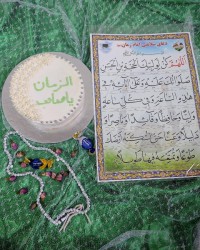 الزمان
یا صاحب
دعای سلامتی امام زمان (عج)
اللهم كن لوليك الحجة بن الحسن
صلواتك عليه وعلى آبائه في
هذه الساعة وفي كل ساعة
وليا وحافظا وقائدا وناصرا
ودليلا وعينا حتى تسكنه أرضك
طوعا وتمتعه فيها طويلا